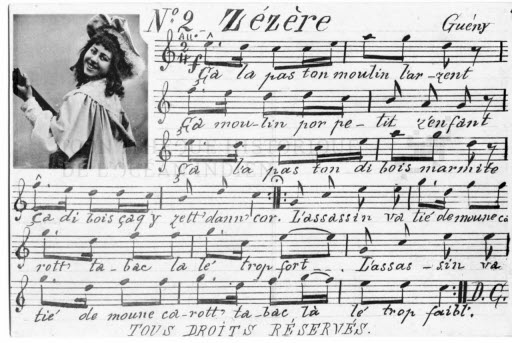 N.º 2 Zézère Guény
All.º
Ça la pas ton moulin l'ar-zent
Ça mou-lin por pe-tit z'enfant
Ça la pas ton di bois marmite
Ça di bois çaq'y zett' dann' cor. L'assassin va tié de moune ca
rott' ta-bac la lé trop fort _ _ . L'assas-sin va
tié de moune ca-rott' ta-bac, la lé trop faibl'.
D.C.
TOUS DROITS RÉSERVÉS.